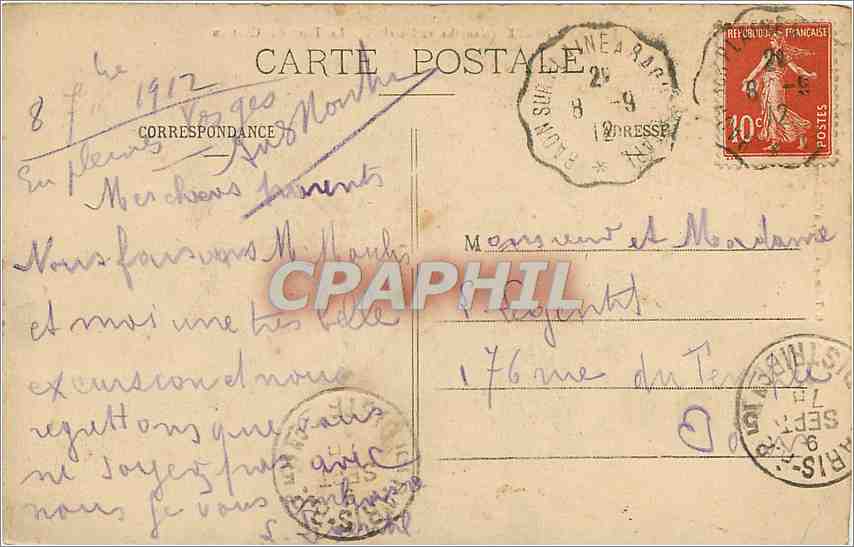 CARTE POSTALE
CORRESPONDANCE
ADRESSE
8 7bre 1912
En pleines Vosges
Mes chers parents
Nous faisons M.
et moi une très belle
excursion et nous
regrettons que vous
ne soyez pas avec
nous je vous embrasse
Monsieur et Madame
176 rue du Temple
Paris
RÉPUBLIQUE FRANÇAISE
10c
POSTES
RAON SUR PLAINE A RAON
8 -9
12
8 -9
12
PARIS
DISTRIBUTION
7H
9
SEPT
CPAPHIL